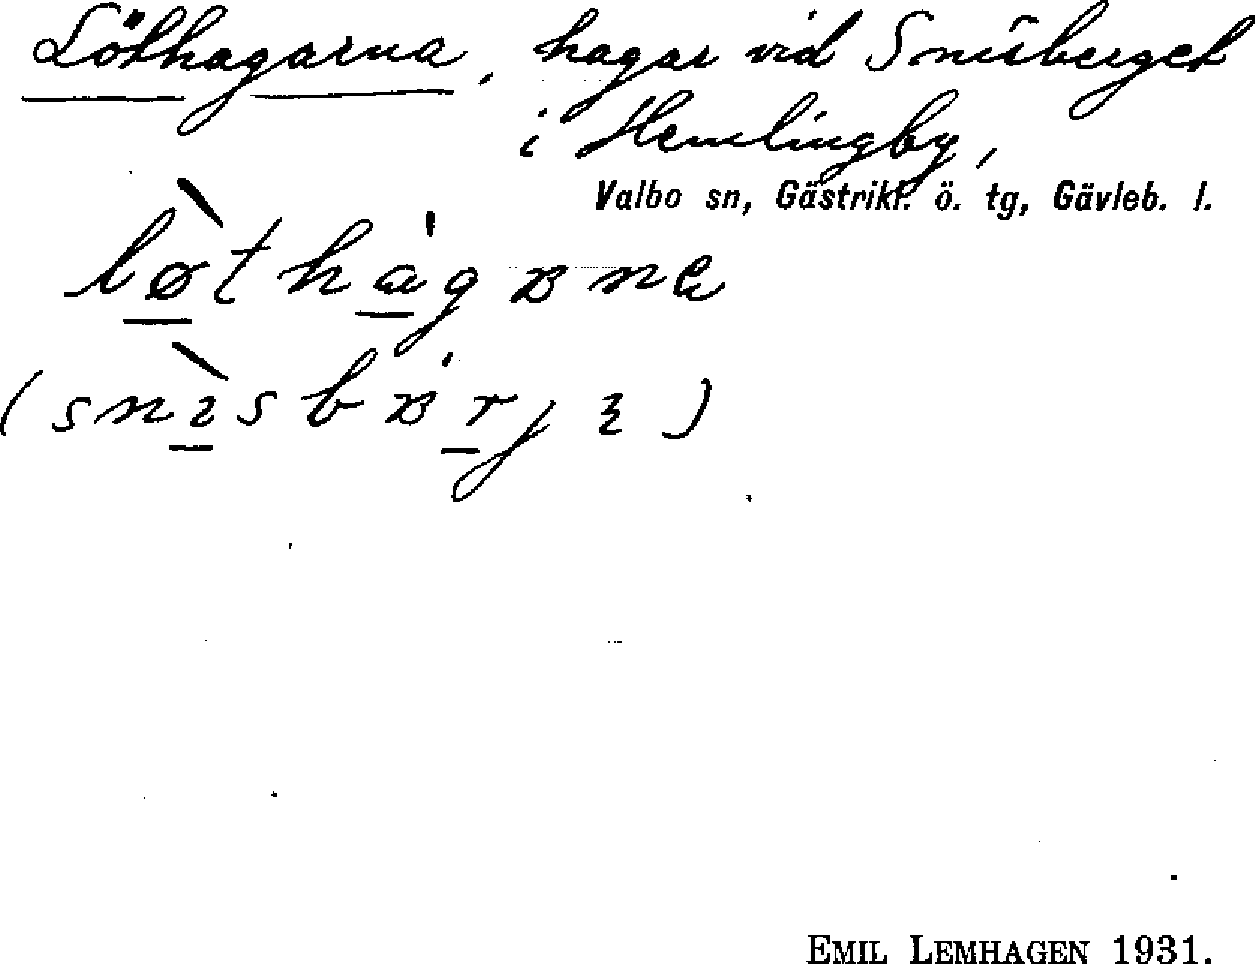 Löthagarna, hagar vid Snisberget
i Hemlingby,
Valbo sn, Gästrikl. ö. tg, Gävleb. l.
løthagɐnɐ
(snɪsbɐrjɜ)
EMIL LEMHAGEN 1931.